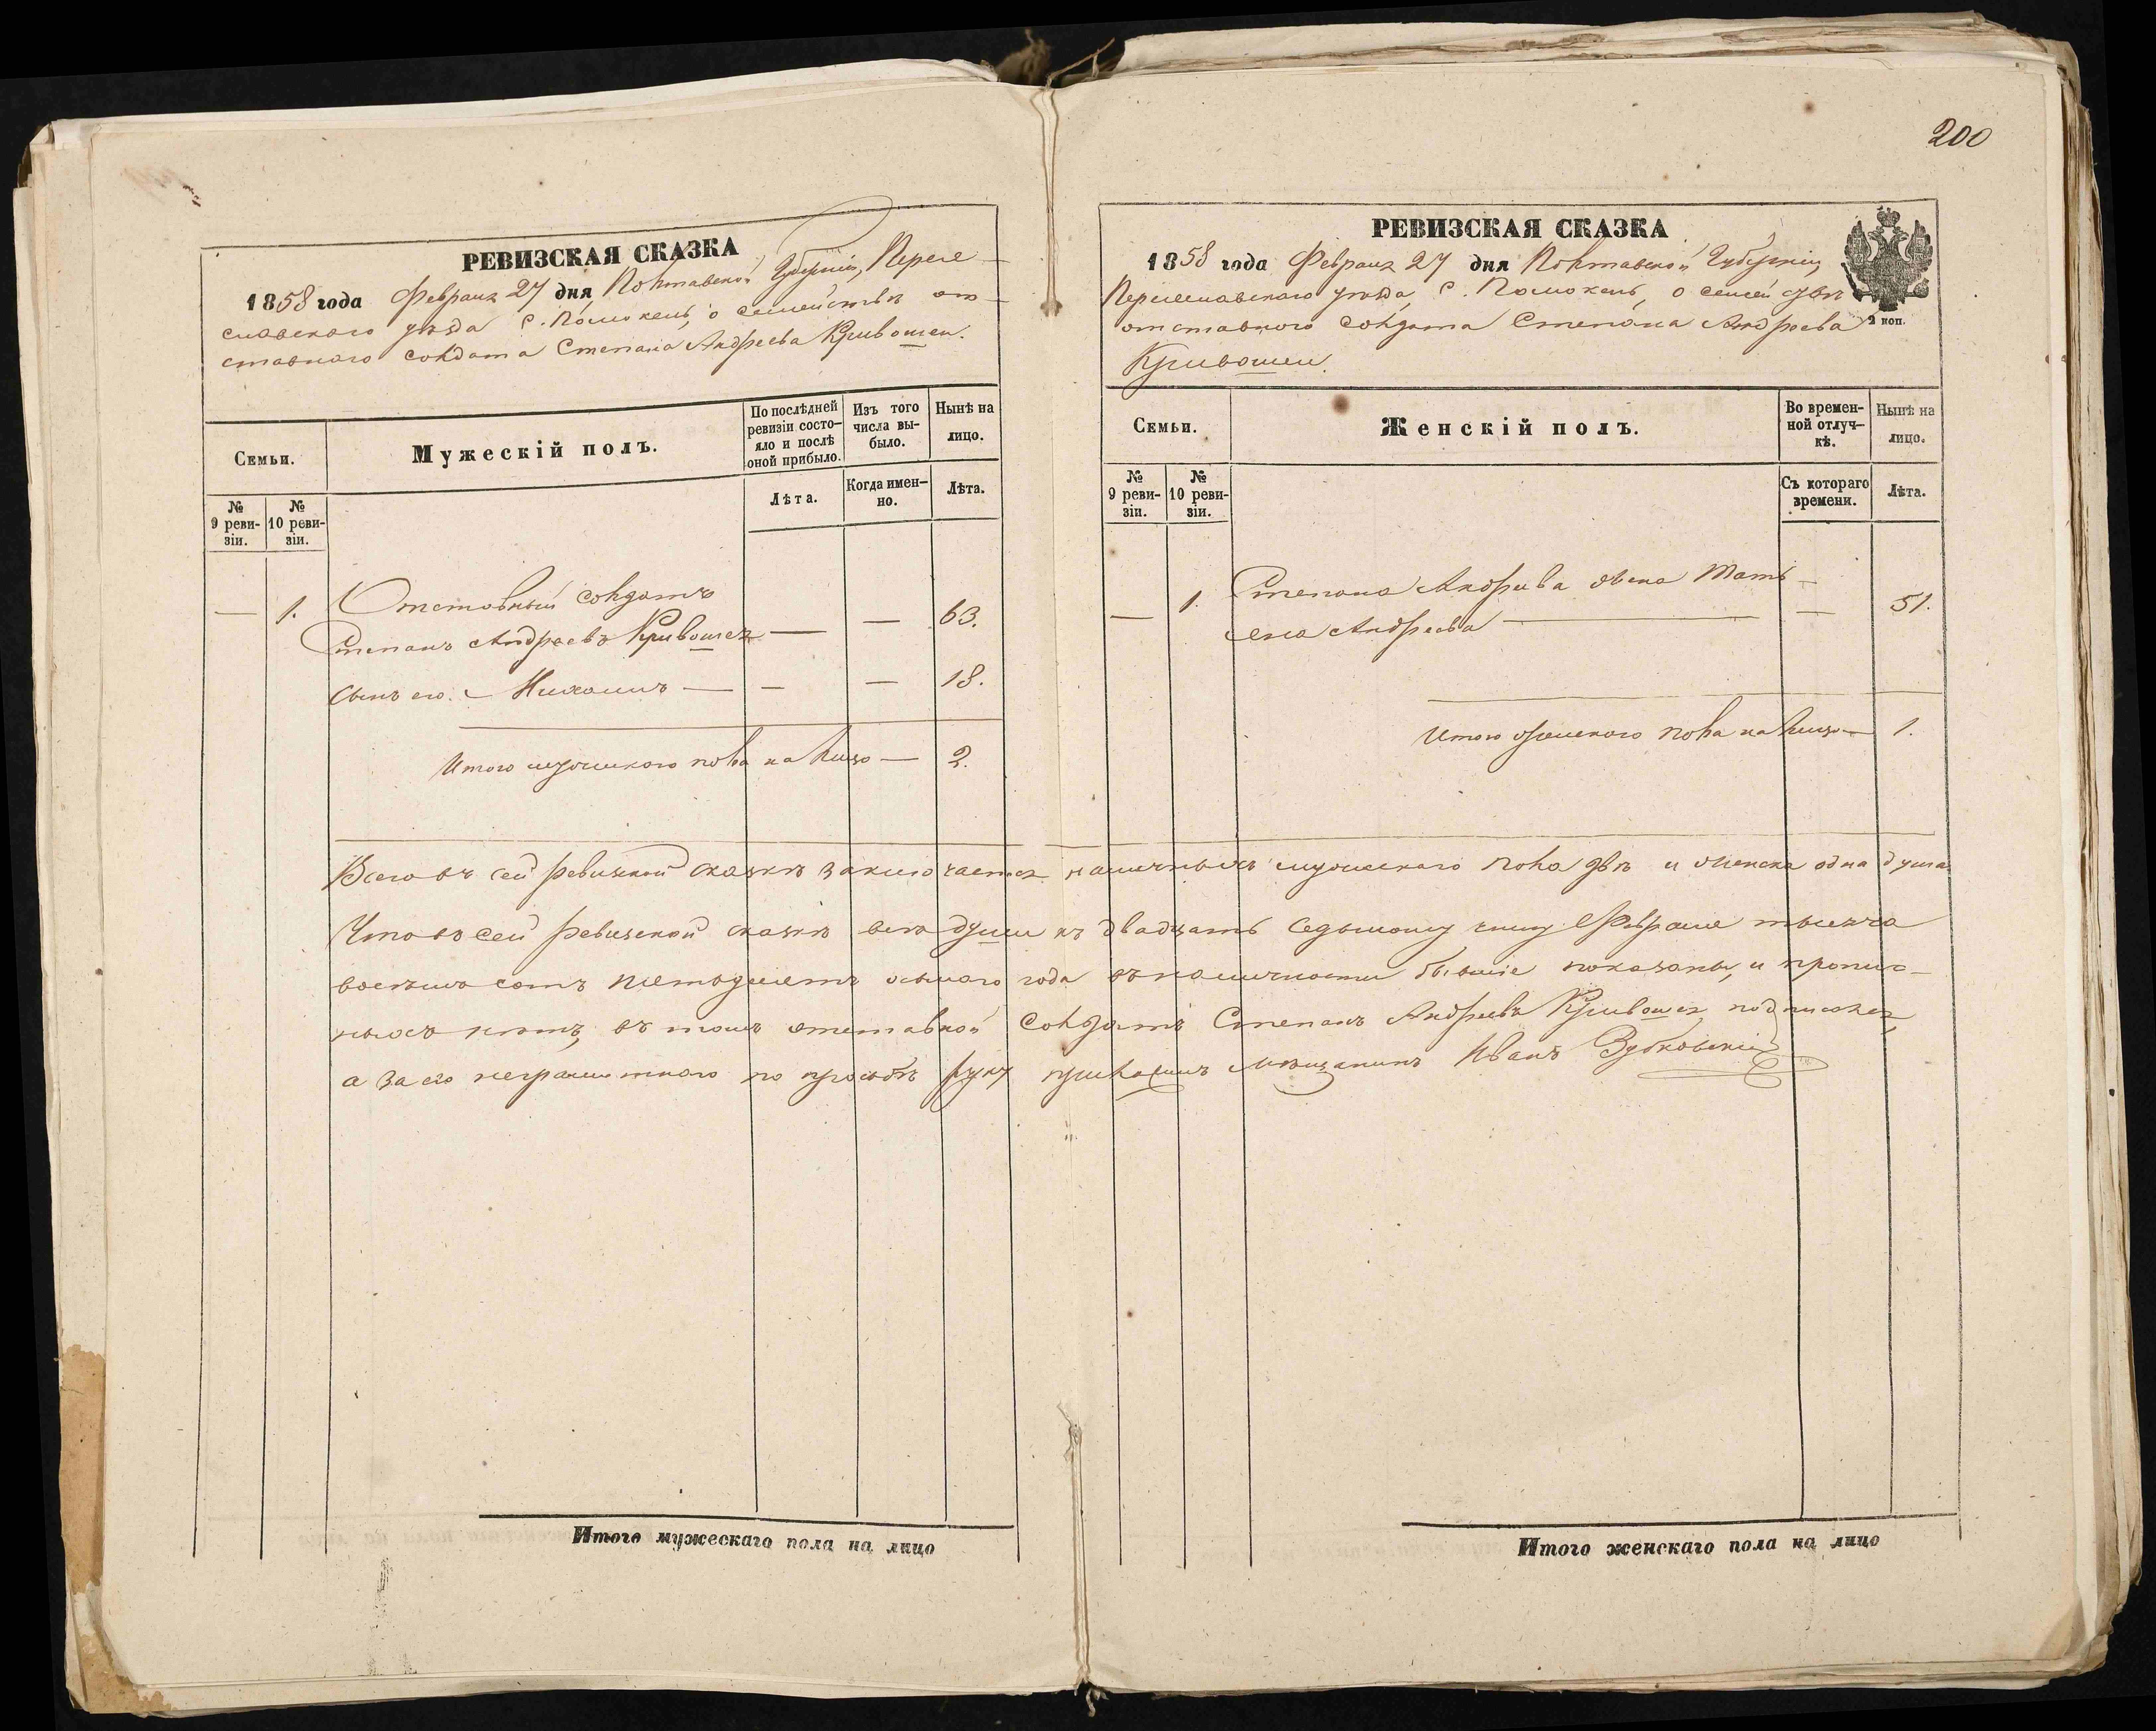 200
РЕВИЗСКАЯ СКАЗКА
1858 года Февраля 27 дня Полтавской Губерніи, Перея-
славского уѣзда С. Помокель, о семействѣ от-
ставного солдата Степана Андреева Кривошеи.
Семьи.
Мужескій полъ.
По послѣдней ревизіи состо-
яло и послѣ оной прибыло.
Изъ того числа вы-
было.
Нынѣ на лицо.
№ 9 реви-
зіи.
№ 10 реви-
зіи.
Лѣта.
Когда имен-
но.
Лѣта.
— 1. Отставный солдатъ
Степанъ Андреевъ Кривошея — — 63.
сынъ его — — — 18.
Итого мужескаго пола на лицо — 2.
РЕВИЗСКАЯ СКАЗКА
1858 года Февраля 27 дня Полтавской Губерніи,
Переяславскаго уѣзда, С. Помокель, о семействѣ
отставного солдата Степана Андреева
Кривошеи.
2 коп.
Семьи.
Женскій полъ.
Во времен-
ной отлуч-
кѣ.
Нынѣ на лицо.
№ 9 реви-
зіи.
№ 10 реви-
зіи.
Съ котораго времени.
Лѣта.
— 1. Степана Андреева жена Тать-
яна Андреева — — 51.
Итого женского пола на лицо — 1.
Всего въ сей ревизской сказкѣ заключается наличныхъ мужескаго пола двѣ и женска одна душа
Что въ сей ревизской сказкѣ всѣ души къ двадцать седьмому числу Февраля тысяча
восемь сотъ пятьдесятъ осьмаго года въ наличности бывшіе показаны, и пропис-
ныхъ нѣтъ, въ томъ отставной Солдатъ Степанъ Андреевъ Кривошея подписался,
а за его неграмотного по просьбѣ руку приложилъ мѣщанинъ Иванъ Зубковскій
Итого мужескаго пола на лицо
Итого женскаго пола на лицо